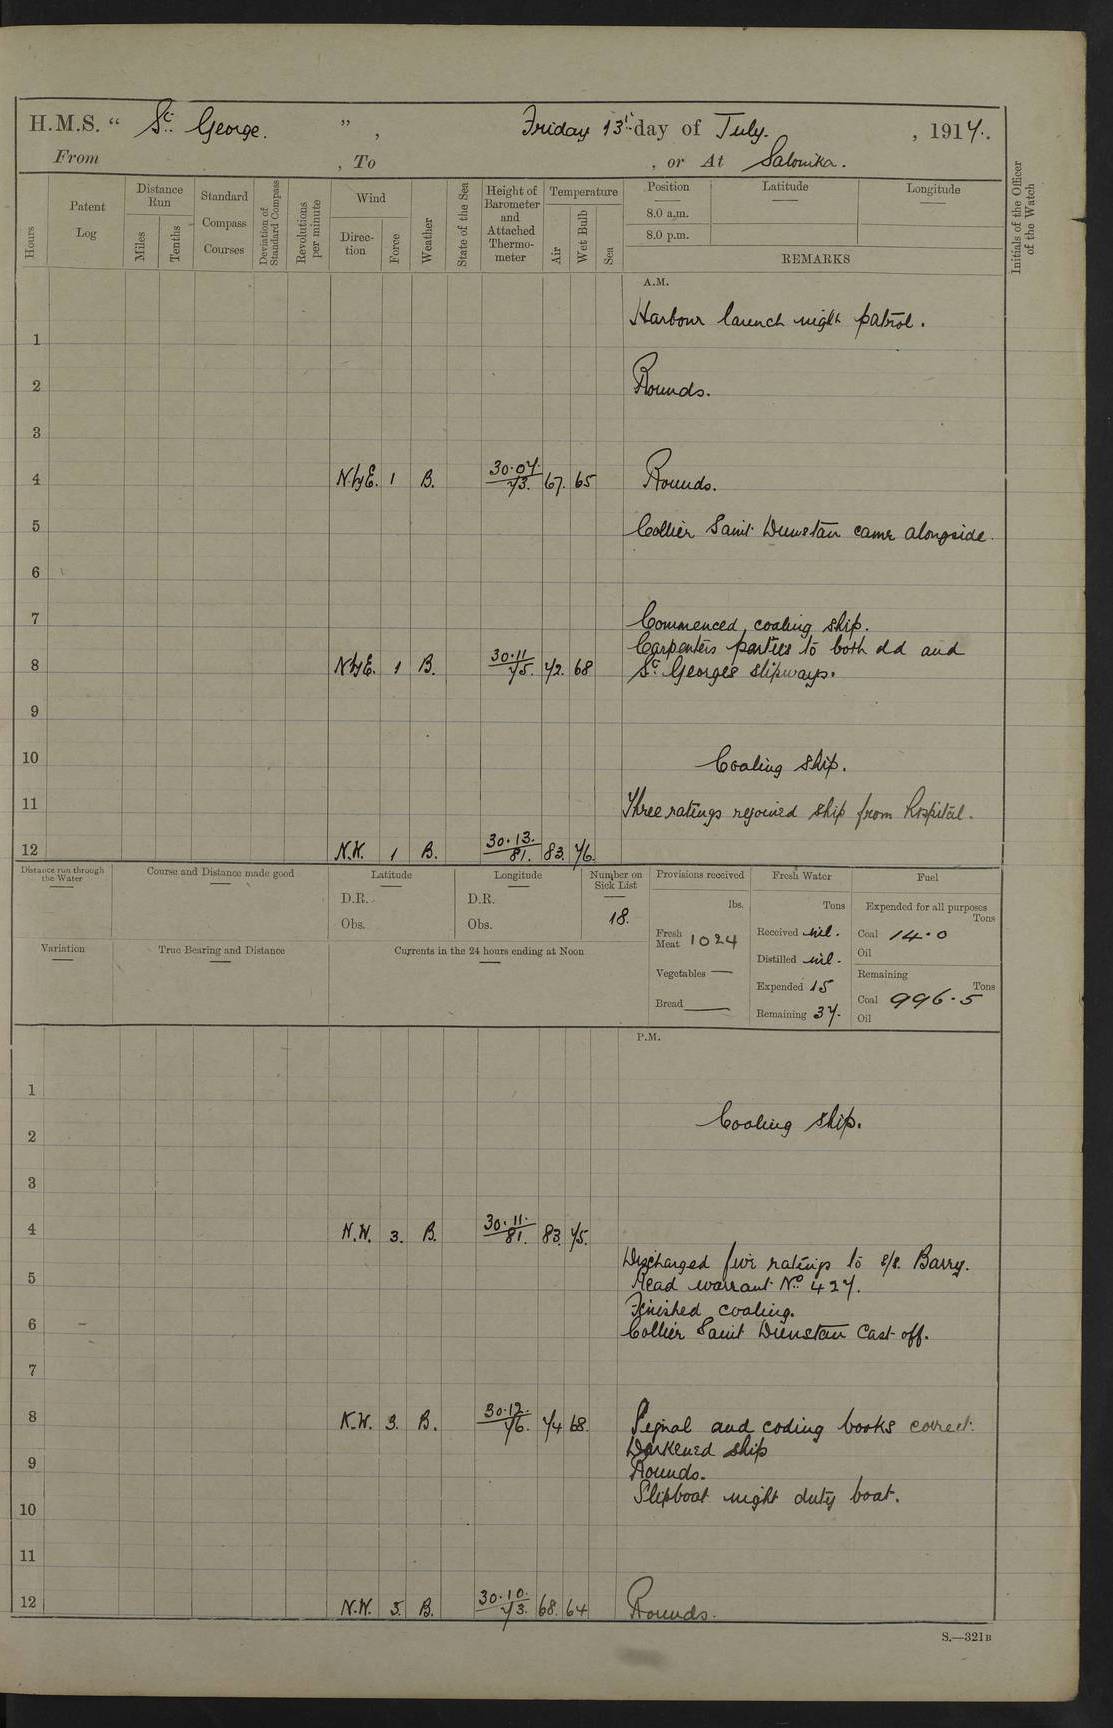 H.M.S. “ St. George. ” , Friday 13th day of July. , 1917.
From , To , or At Salonika.
Hours
Patent Log
Distance Run
Miles
Tenths
Standard Compass Courses
Deviation of Standard Compass
Revolutions per minute
Wind
Direction
Force
Weather
State of the Sea
Height of Barometer and Attached Thermometer
Temperature
Air
Wet Bulb
Sea
Position
Latitude
Longitude
8.0 a.m.
8.0 p.m.
REMARKS
Initials of the Officer of the Watch
A.M.
Harbour launch night patrol.
1
2 Rounds.
3
4 N.byE. 1 B. 30.07. 73. 67. 65 Rounds.
5 Collier Saint Dunstan came alongside.
6
7 Commenced coaling ship.
Carpenters parties to both dd and
8 NbyE. 1 B. 30.11 75. 72. 68 St Georges slipways.
9
10 Coaling ship.
11 Three ratings rejoined ship from hospital.
12 N.W. 1 B. 30.13. 81. 83. 76.
Distance run through the Water
Course and Distance made good
Latitude
D.R.
Obs.
Longitude
D.R.
Obs.
Number on Sick List
18.
Provisions received
lbs.
Fresh Meat 1024
Vegetables —
Bread —
Fresh Water
Tons
Received nil.
Distilled nil.
Expended 15
Remaining 37.
Fuel
Expended for all purposes
Tons
Coal 14.0
Oil
Remaining
Tons
Coal 996.5
Oil
Variation
True Bearing and Distance
Currents in the 24 hours ending at Noon
P.M.
1
Coaling ship.
2
3
4 N.W. 3. B. 30.11. 81. 83. 75.
Discharged five ratings to s/s. Barry.
5 Read warrant No 427.
Finished coaling.
6 Collier Saint Dunstan cast off.
7
8 N.W. 3. B. 30.12. 76. 74 68. Signal and coding books correct.
Darkened ship
9 Rounds.
Slipboat night duty boat.
10
11
12 N.W. 3. B. 30.10. 73. 68. 64 Rounds.
S.—321B